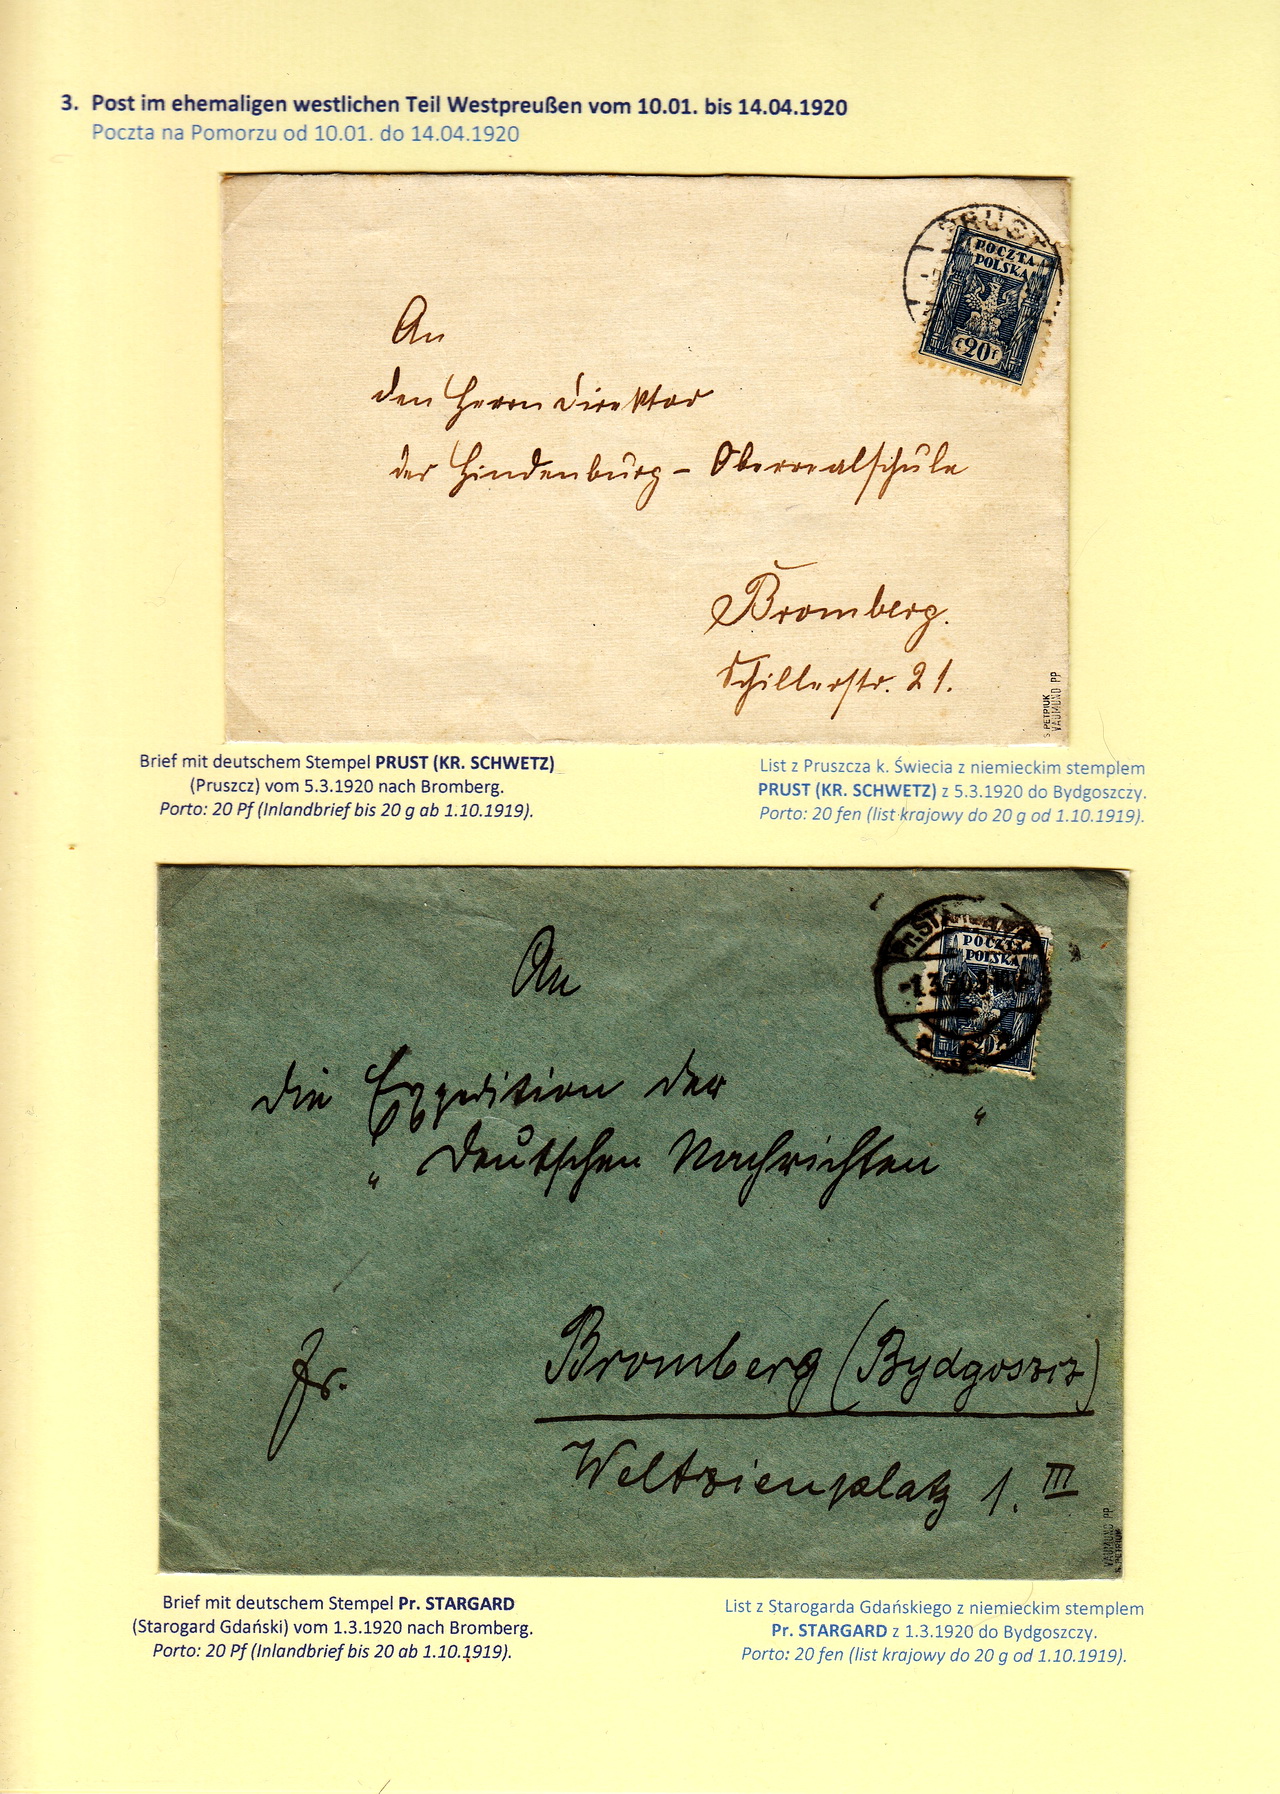 3. Post im ehemaligen westlichen Teil Westpreußen vom 10.01. bis 14.04.1920
Poczta na Pomorzu od 10.01. do 14.04.1920
PRUST
POCZTA
POLSKA
f 20 f
An
den Herrn Direktor
der Hindenburg - Oberrealschule
Bromberg.
Schillerstr. 21.
S. PETRIUK
VAUMUND PP
Brief mit deutschem Stempel PRUST (KR. SCHWETZ)
(Pruszcz) vom 5.3.1920 nach Bromberg.
Porto: 20 Pf (Inlandbrief bis 20 g ab 1.10.1919).
List z Pruszcza k. Świecia z niemieckim stemplem
PRUST (KR. SCHWETZ) z 5.3.1920 do Bydgoszczy.
Porto: 20 fen (list krajowy do 20 g od 1.10.1919).
Pr. STARGARD
POCZTA
POLSKA
1.3.20
20
An
die Expedition der
„Deutschen Nachrichten“
Fr.
Bromberg (Bydgoszcz)
Weltzienplatz 1. III
VAUMUND PP
S. PETRIUK
Brief mit deutschem Stempel Pr. STARGARD
(Starogard Gdański) vom 1.3.1920 nach Bromberg.
Porto: 20 Pf (Inlandbrief bis 20 ab 1.10.1919).
List z Starogarda Gdańskiego z niemieckim stemplem
Pr. STARGARD z 1.3.1920 do Bydgoszczy.
Porto: 20 fen (list krajowy do 20 g od 1.10.1919).